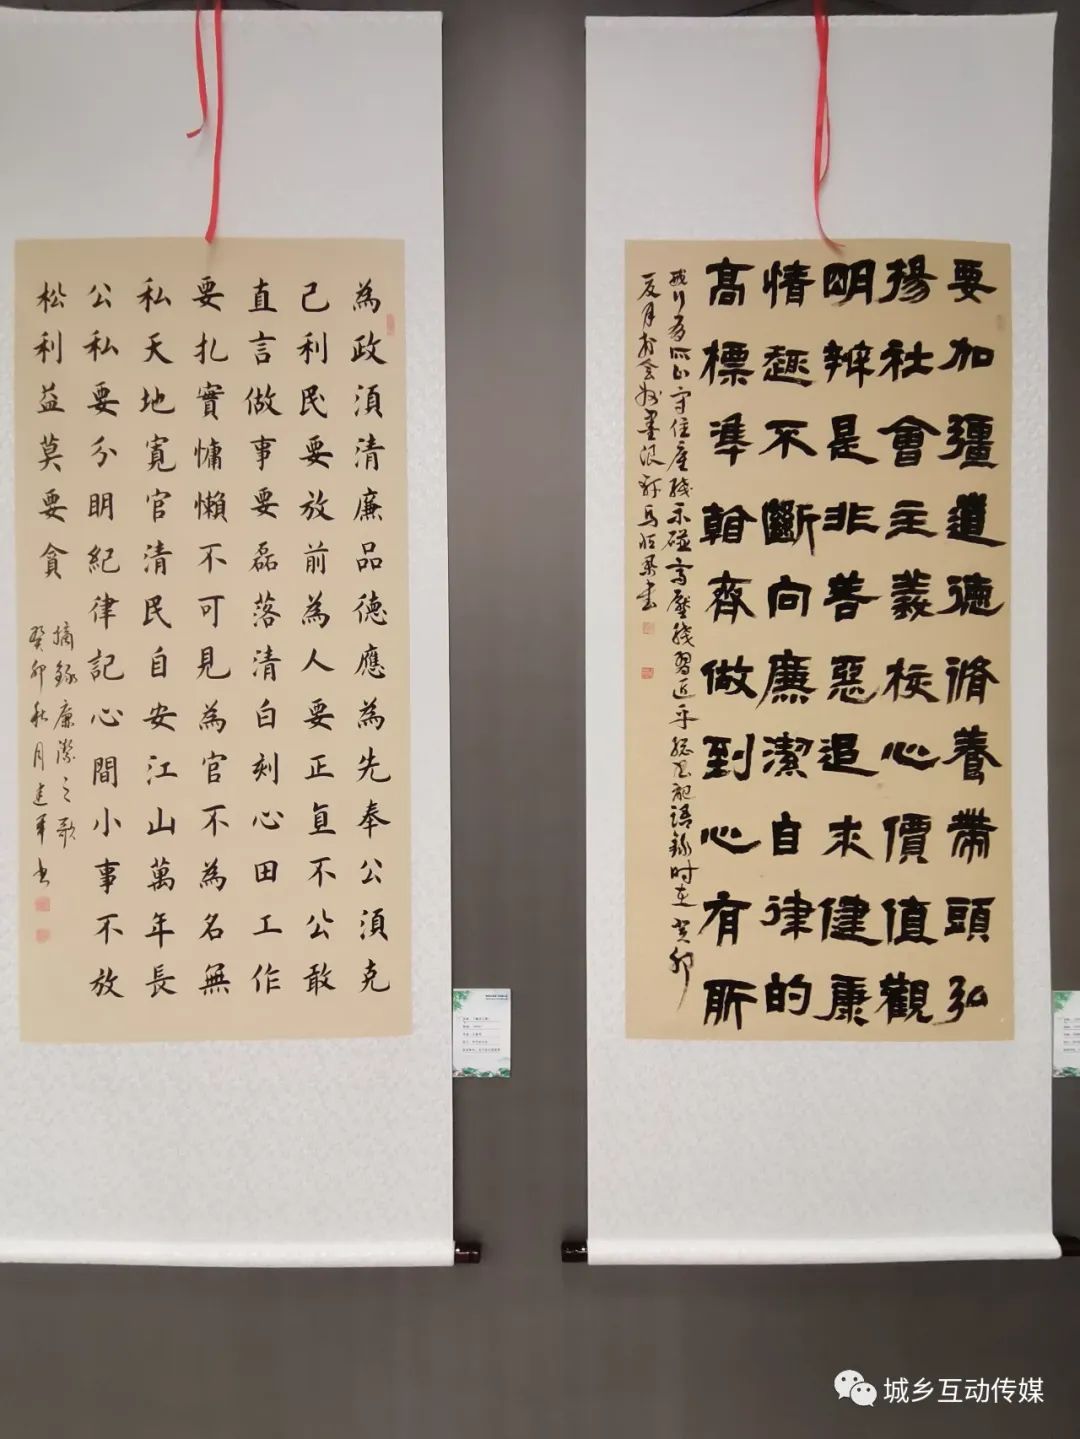 為政須清廉品德應為先奉公須克
己利民要放前為人要正直不公敢
直言做事要磊落清白刻心田工作
要扎實慵懶不可見為官不為名無
私天地寬官清民自安江山萬年長
公私要分明紀律記心間小事不放
松利益莫要貪
摘錄廉潔之歌
癸卯秋月建軍書
要加彊道德脩養帶頭弘
揚社會主義核心價值觀
明辨是非善惡追求健康
情趣不斷向廉潔自律的
高標準看齊做到心有所
戒行有所止守住底线不碰高壓线習近平總書記語錄時在癸卯
夏月於墨浪軒馬書
城乡互动传媒